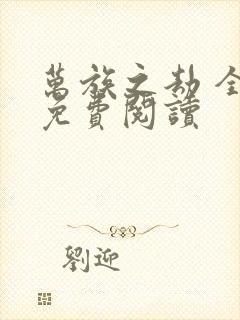 萬族之劫 全
免費閱讀
劉迎